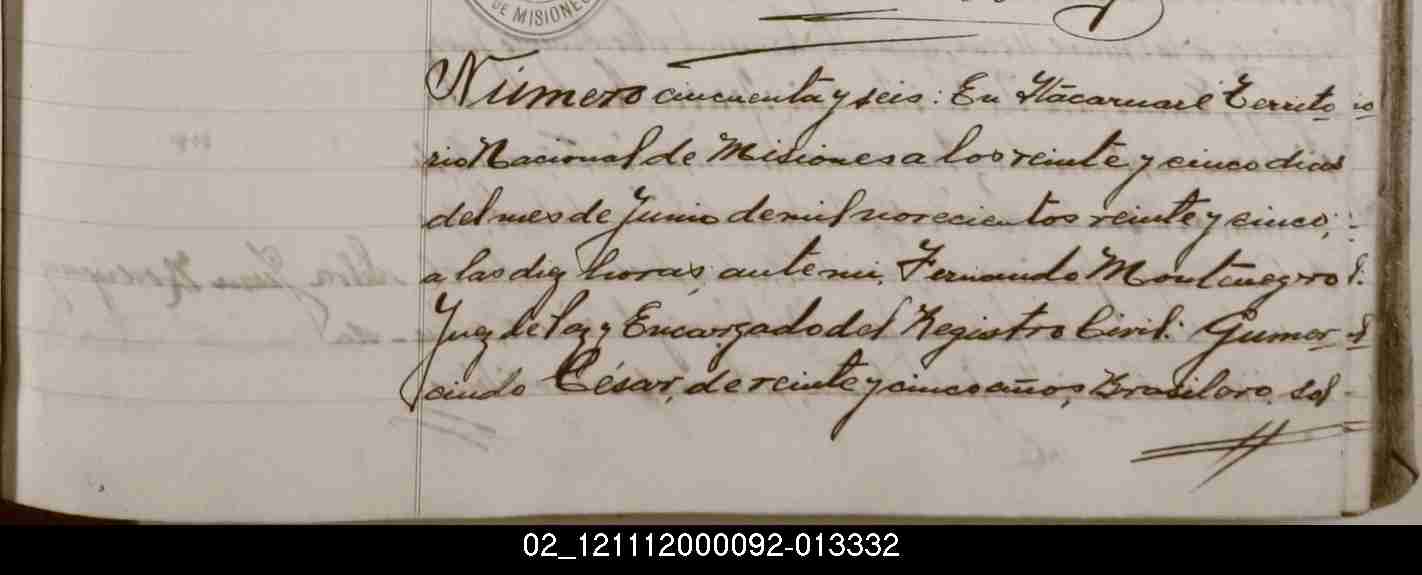 DE MISIONES
Número cincuenta y seis: En Itácaruaré Territo
rio Nacional de Misiones a los veinte y cinco dias
del mes de Junio de mil novecientos veinte y cinco,
a las diez horas, ante mi, Fernando Montenegro
Juez de Paz y Encargado del Registro Civil: Gumer
cindo César, de veinte y cinco años, Brasilero, sol
02_121112000092-013332